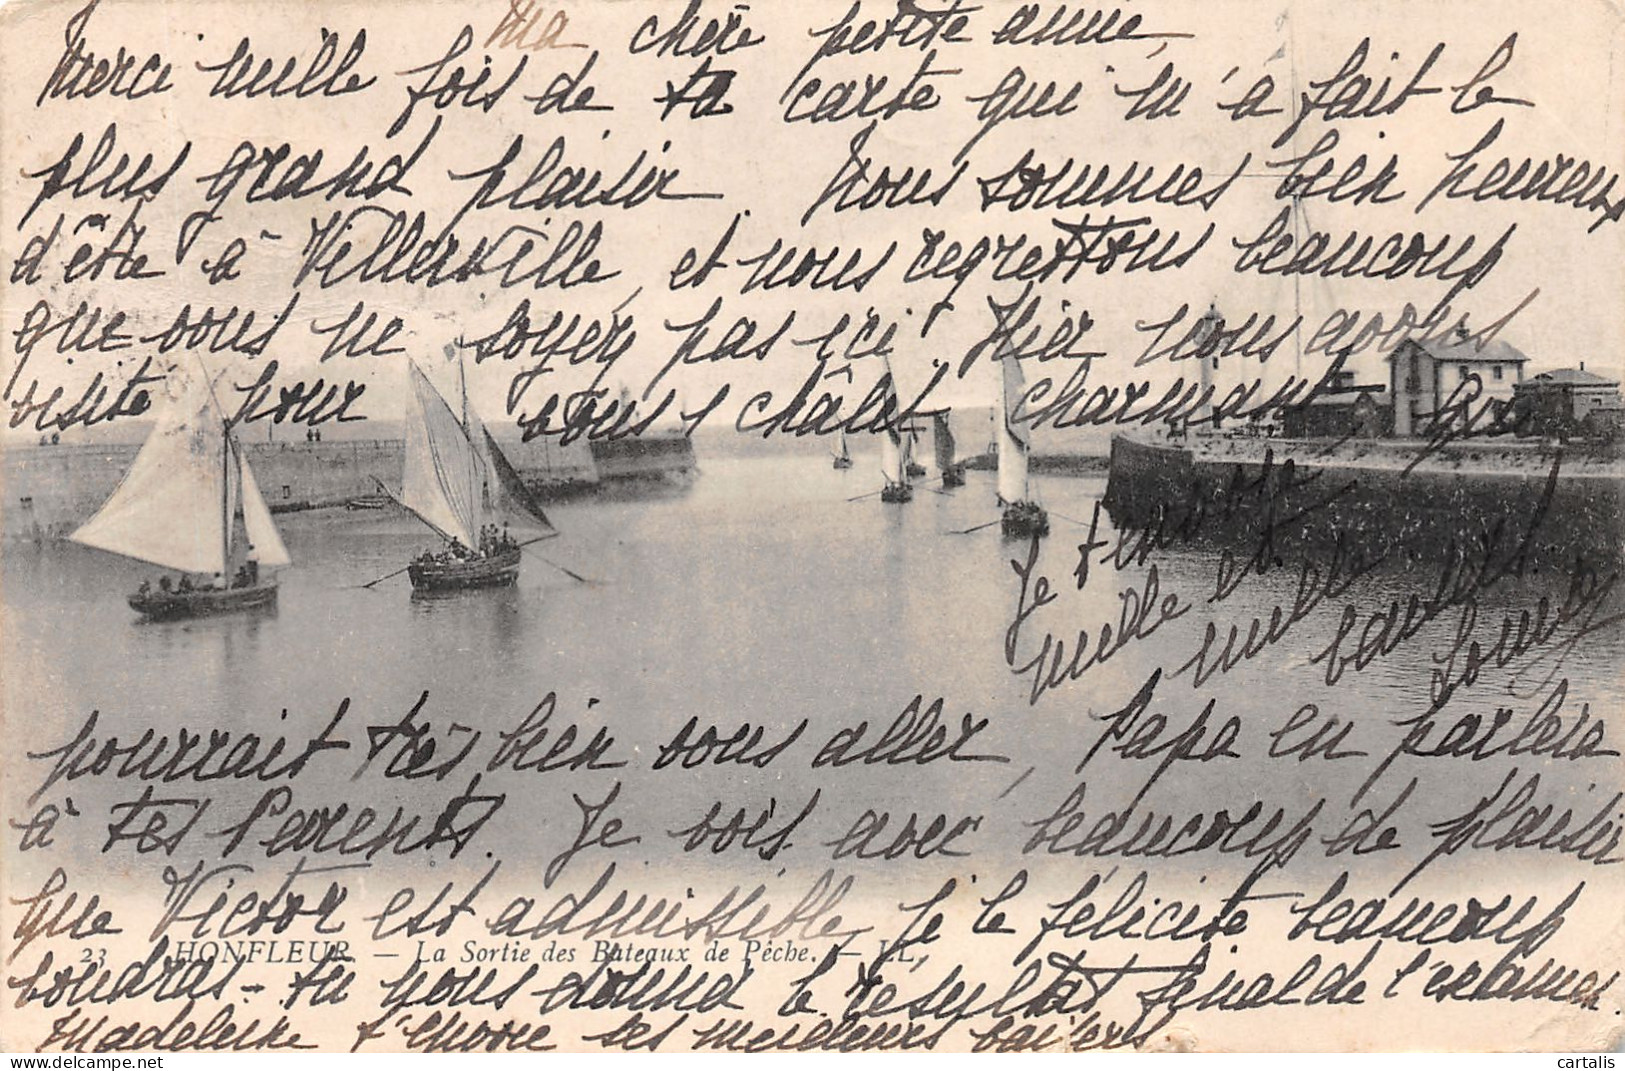 ma chère petite amie,
Merci mille fois de ta carte qui m'a fait le
plus grand plaisir. Nous sommes bien heureux
d'être à Villerville, et nous regrettons beaucoup
que vous ne soyez pas ici. Hier nous avons
visité pour vous 1 châlet charmant qui
pourrait très bien vous aller, Papa en parlera
à tes Parents. Je vois avec beaucoup de plaisir
que Victor est admissible, je le félicite beaucoup
voudras-tu nous donner le résultat final de l'examen.
Madeleine t'envoie ses meilleurs baisers.
Je t'envoie
mille et
mille
baisers.
23 HONFLEUR. — La Sortie des Bateaux de Pêche. — LL.
cartalis